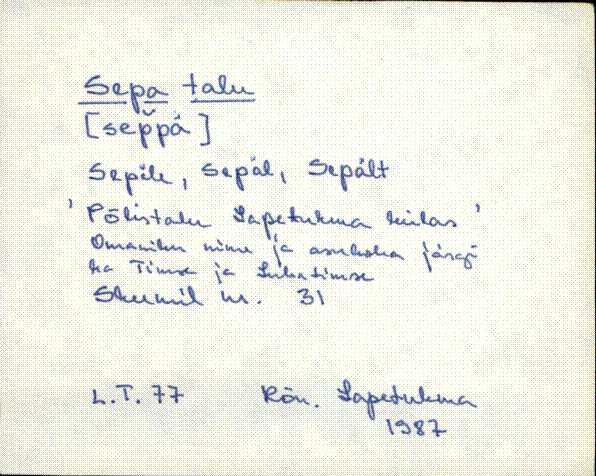 Sepa talu
[sep̆pȧ]
Sepȧle, Sepȧl, Sepȧlt
'Põlistalu Lapetukma külas'
Omaniku nime ja asukoha järgi
ka Timse ja Luhatimse
Skeemil nr. 31
L.T. 77 Rõn. Lapetukma
1987